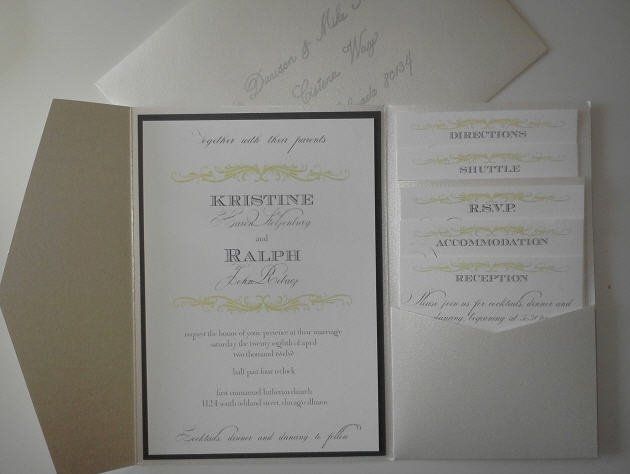 Davison & Mike
Cistena Way
80134
Together with their parents
KRISTINE
and
RALPH
John
request the honor of your presence at their marriage
saturday the twenty eighth of april
two thousand twelve
half past four o'clock
first immanuel lutheran church
1124 south ashland street, chicago illinois
Cocktails, dinner and dancing to follow
DIRECTIONS
SHUTTLE
R.S.V.P.
ACCOMMODATION
RECEPTION
Please join us for cocktails, dinner and
dancing beginning at